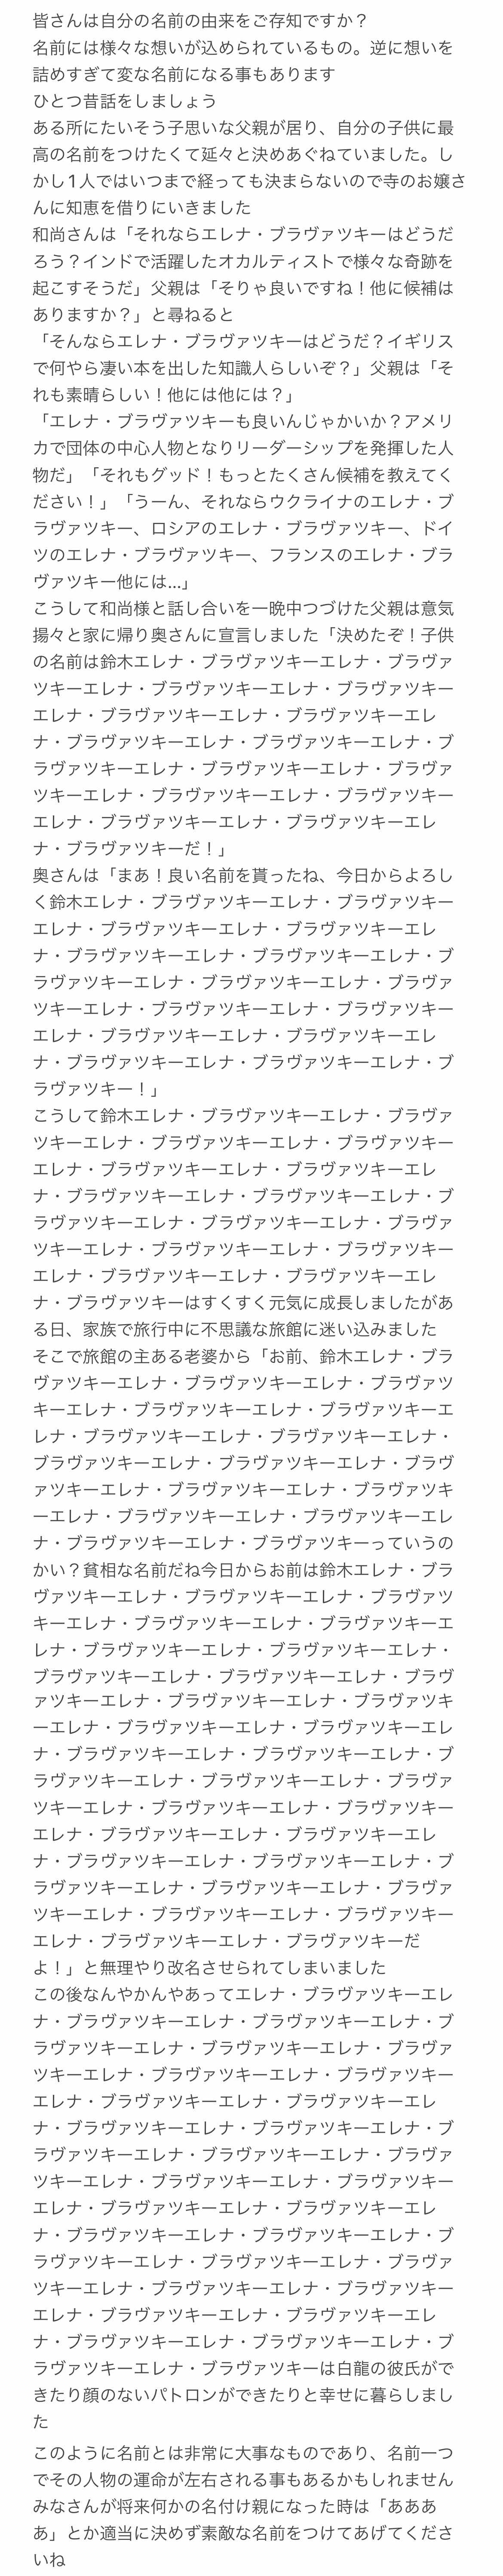 皆さんは自分の名前の由来をご存知ですか？
名前には様々な想いが込められているもの。逆に想いを
詰めすぎて変な名前になる事もあります
ひとつ昔話をしましょう
ある所にたいそう子思いな父親が居り、自分の子供に最
高の名前をつけたくて延々と決めあぐねていました。し
かし1人ではいつまで経っても決まらないので寺のお嬢さ
んに知恵を借りにいきました
和尚さんは「それならエレナ・ブラヴァツキーはどうだ
ろう？インドで活躍したオカルティストで様々な奇跡を
起こすそうだ」父親は「そりゃ良いですね！他に候補は
ありますか？」と尋ねると
「そんならエレナ・ブラヴァツキーはどうだ？イギリス
で何やら凄い本を出した知識人らしいぞ？」父親は「そ
れも素晴らしい！他には他には？」
「エレナ・ブラヴァツキーも良いんじゃかいか？アメリ
カで団体の中心人物となりリーダーシップを発揮した人
物だ」「それもグッド！もっとたくさん候補を教えてく
ださい！」「うーん、それならウクライナのエレナ・ブ
ラヴァツキー、ロシアのエレナ・ブラヴァツキー、ドイ
ツのエレナ・ブラヴァツキー、フランスのエレナ・ブラ
ヴァツキー他には...」
こうして和尚様と話し合いを一晩中つづけた父親は意気
揚々と家に帰り奥さんに宣言しました「決めたぞ！子供
の名前は鈴木エレナ・ブラヴァツキーエレナ・ブラヴァ
ツキーエレナ・ブラヴァツキーエレナ・ブラヴァツキー
エレナ・ブラヴァツキーエレナ・ブラヴァツキーエレ
ナ・ブラヴァツキーエレナ・ブラヴァツキーエレナ・ブ
ラヴァツキーエレナ・ブラヴァツキーエレナ・ブラヴァ
ツキーエレナ・ブラヴァツキーエレナ・ブラヴァツキー
エレナ・ブラヴァツキーエレナ・ブラヴァツキーエレ
ナ・ブラヴァツキーだ！」
奥さんは「まあ！良い名前を貰ったね、今日からよろし
く鈴木エレナ・ブラヴァツキーエレナ・ブラヴァツキー
エレナ・ブラヴァツキーエレナ・ブラヴァツキーエレ
ナ・ブラヴァツキーエレナ・ブラヴァツキーエレナ・ブ
ラヴァツキーエレナ・ブラヴァツキーエレナ・ブラヴァ
ツキーエレナ・ブラヴァツキーエレナ・ブラヴァツキー
エレナ・ブラヴァツキーエレナ・ブラヴァツキーエレ
ナ・ブラヴァツキーエレナ・ブラヴァツキーエレナ・ブ
ラヴァツキー！」
こうして鈴木エレナ・ブラヴァツキーエレナ・ブラヴァ
ツキーエレナ・ブラヴァツキーエレナ・ブラヴァツキー
エレナ・ブラヴァツキーエレナ・ブラヴァツキーエレ
ナ・ブラヴァツキーエレナ・ブラヴァツキーエレナ・ブ
ラヴァツキーエレナ・ブラヴァツキーエレナ・ブラヴァ
ツキーエレナ・ブラヴァツキーエレナ・ブラヴァツキー
エレナ・ブラヴァツキーエレナ・ブラヴァツキーエレ
ナ・ブラヴァツキーはすくすく元気に成長しましたがあ
る日、家族で旅行中に不思議な旅館に迷い込みました
そこで旅館の主ある老婆から「お前、鈴木エレナ・ブラ
ヴァツキーエレナ・ブラヴァツキーエレナ・ブラヴァツ
キーエレナ・ブラヴァツキーエレナ・ブラヴァツキーエ
レナ・ブラヴァツキーエレナ・ブラヴァツキーエレナ・
ブラヴァツキーエレナ・ブラヴァツキーエレナ・ブラヴ
ァツキーエレナ・ブラヴァツキーエレナ・ブラヴァツキ
ーエレナ・ブラヴァツキーエレナ・ブラヴァツキーエレ
ナ・ブラヴァツキーエレナ・ブラヴァツキーっていうの
かい？貧相な名前だね今日からお前は鈴木エレナ・ブラ
ヴァツキーエレナ・ブラヴァツキーエレナ・ブラヴァツ
キーエレナ・ブラヴァツキーエレナ・ブラヴァツキーエ
レナ・ブラヴァツキーエレナ・ブラヴァツキーエレナ・
ブラヴァツキーエレナ・ブラヴァツキーエレナ・ブラヴ
ァツキーエレナ・ブラヴァツキーエレナ・ブラヴァツキ
ーエレナ・ブラヴァツキーエレナ・ブラヴァツキーエレ
ナ・ブラヴァツキーエレナ・ブラヴァツキーエレナ・ブ
ラヴァツキーエレナ・ブラヴァツキーエレナ・ブラヴァ
ツキーエレナ・ブラヴァツキーエレナ・ブラヴァツキー
エレナ・ブラヴァツキーエレナ・ブラヴァツキーエレ
ナ・ブラヴァツキーエレナ・ブラヴァツキーエレナ・ブ
ラヴァツキーエレナ・ブラヴァツキーエレナ・ブラヴァ
ツキーエレナ・ブラヴァツキーエレナ・ブラヴァツキー
エレナ・ブラヴァツキーエレナ・ブラヴァツキーだ
よ！」と無理やり改名させられてしまいました
この後なんやかんやあってエレナ・ブラヴァツキーエレ
ナ・ブラヴァツキーエレナ・ブラヴァツキーエレナ・ブ
ラヴァツキーエレナ・ブラヴァツキーエレナ・ブラヴァ
ツキーエレナ・ブラヴァツキーエレナ・ブラヴァツキー
エレナ・ブラヴァツキーエレナ・ブラヴァツキーエレ
ナ・ブラヴァツキーエレナ・ブラヴァツキーエレナ・ブ
ラヴァツキーエレナ・ブラヴァツキーエレナ・ブラヴァ
ツキーエレナ・ブラヴァツキーエレナ・ブラヴァツキー
エレナ・ブラヴァツキーエレナ・ブラヴァツキーエレ
ナ・ブラヴァツキーエレナ・ブラヴァツキーエレナ・ブ
ラヴァツキーエレナ・ブラヴァツキーエレナ・ブラヴァ
ツキーエレナ・ブラヴァツキーエレナ・ブラヴァツキー
エレナ・ブラヴァツキーエレナ・ブラヴァツキーエレ
ナ・ブラヴァツキーエレナ・ブラヴァツキーエレナ・ブ
ラヴァツキーエレナ・ブラヴァツキーは白龍の彼氏がで
きたり顔のないパトロンができたりと幸せに暮らしまし
た
このように名前とは非常に大事なものであり、名前一つ
でその人物の運命が左右される事もあるかもしれません
みなさんが将来何かの名付け親になった時は「あああ
あ」とか適当に決めず素敵な名前をつけてあげてくださ
いね